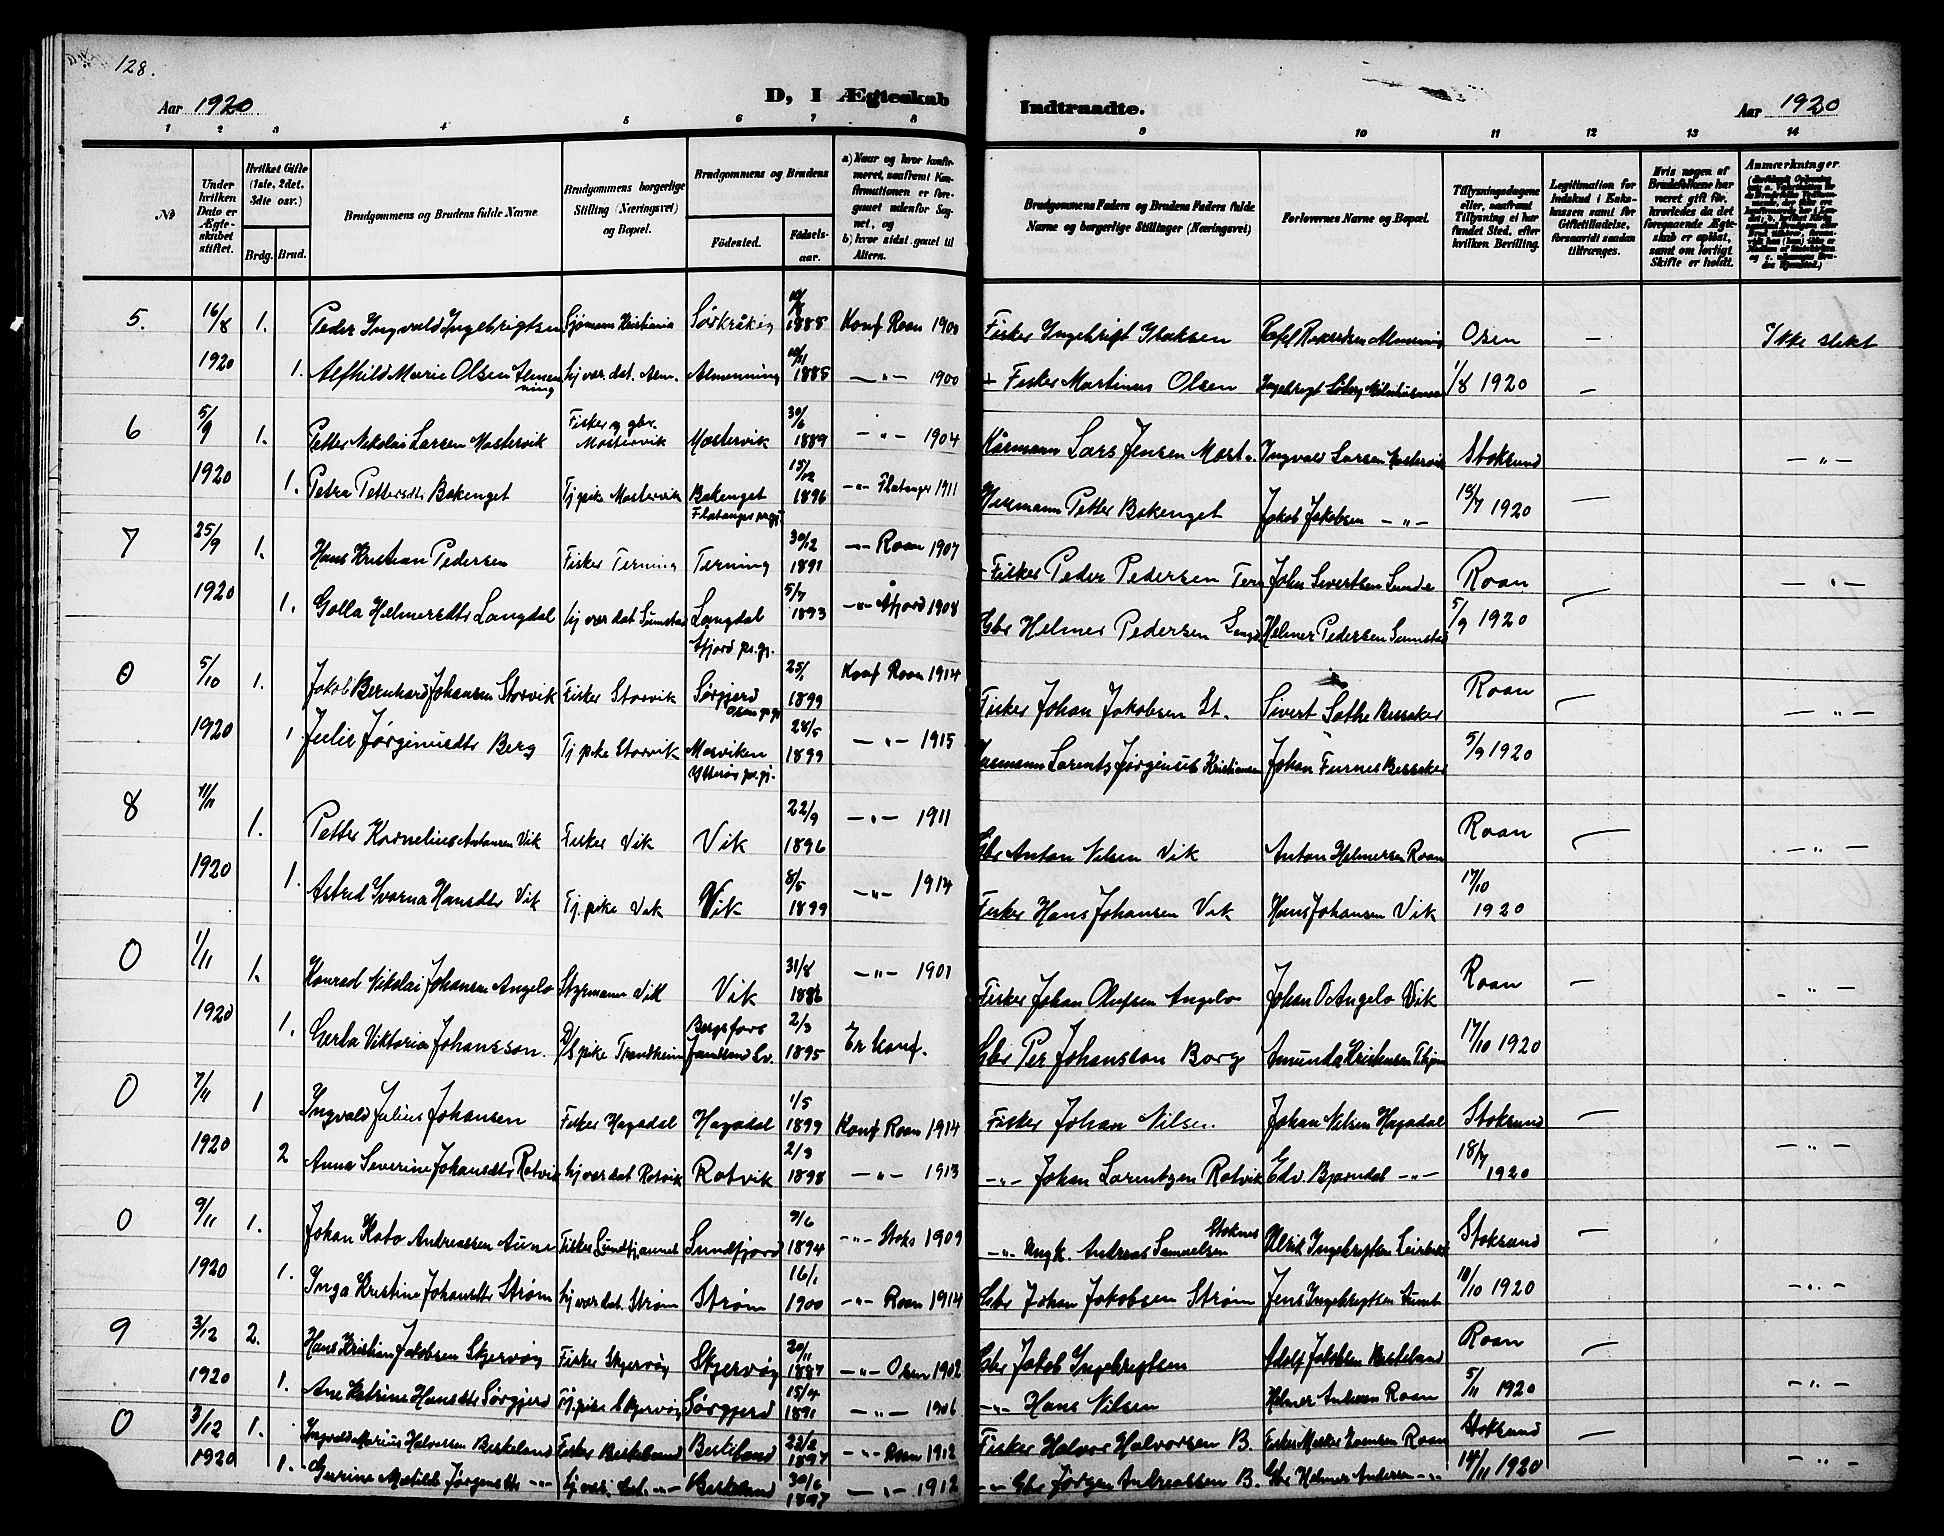 128.
Aar 1920
D, I Ægteskab
Indtraadte.
Aar 1920
1 2 3 4 5 6 7 8 9 10 11 12 13 14
No
Under hvilken Dato er Ægteskabet stiftet.
Hvilket Gifte (1ste, 2det, 3die osv.)
Brdg. Brud.
Brudgommens og Brudens fulde Navne
Brudgommens borgerlige Stilling (Næringsvei) og Bopæl.
Brudgommens og Brudens
Fødested.
Fødselsaar.
a) Naar og hvor konfirmeret, saafremt Konfirmationen er foregaaet udenfor Sognet, og
b) hvor sidst gaaet til Alters.
Brudgommens Faders og Brudens Faders fulde Navne og borgerlige Stillinger (Næringsvei)
Forlovernes Navne og Bopæl.
Tillysningsdagene eller, saafremt Tillysning ei har fundet Sted, efter hvilken Bevilling.
Legitimation for Indskud i Enkekassen samt for Giftetilladelse, forsaavidt saadan tiltrænges.
Hvis nogen af Brudefolkene har været gift før, hvorledes da det foregaaende Ægteskab er opløst, samt om lovligt Skifte er holdt.
Anmærkninger.
5. 16/8 1. Peder Ingvald Ingebrigtsen Sjømann Kristiania Sørkråkøy 1885 Konf Roan 1900 Fisker Ingebrigt Isaksen Osen — Ikke slekt
1920 1. Alfhild Marie Olsen Almenning hj.vær.dat. Alm. Almenning 10/11 1885 —"— 1900 + Fisker Martinus Olsen 1/8 1920 —
6 5/9 1. Petter Nikolai Larsen Mostervik Fisker og gbr. Mostervik Mostervik 30/6 1889 —"— 1904 Kårmann Lars Jensen Most. Ingvald Larsen Mostervik Stoksund —"—
1920 1. Petra Pettersdtr Bakenget Tj.pike Mostervik Bakenget Flatanger prgj. 15/12 1896 —"— Flatanger 1911 Petter Bakenget Jakob Jakobsen —"— 18/7 1920 —
7 25/9 1. Hans Kristian Pedersen Fisker Terning Terning 30/12 1891 —"— Roan 1907 Fisker Peder Pedersen Tern John Sivertsen Sunde Roan —"—
1920 1. Golla Helmersdtr Langdal hj.vær.dat Sumstad Langdal Åfjord pr.gj. 5/7 1893 —"— Åfjord 1908 Gbr Helmer Pedersen Helmer Pedersen Sumstad 5/9 1920 —
0 5/10 1. Jakob Bernhard Johansen Storvik Fisker Storvik Sørgjerd Osen pr.gj. 25/1 1899 Konf Roan 1914 Fisker Johan Jakobsen St. Sivert Sæthe Bessaker Roan — —"—
1920 1. Julie Jørginusdtr Berg Tj.pike Storvik Mosviken Ytterøy pr.gj. 28/5 1899 —"— 1915 Larents Jørginus Kristiansen Johan Furnes Bessaker 5/9 1920
8 1. Petter Kornelius Antonsen Vik Fisker Vik Vik 22/9 1896 —"— 1911 Gbr Anton Nilsen Vik Anton Helmersen Roan Roan — —"—
1920 1. Astrid Svarna Hansdtr Vik Tj.pike Vik Vik 8/5 1899 —"— 1914 Fisker Hans Johansen Vik Hans Johansen Vik 17/10 1920
0 1/11 1. Konrad Nikolai Johansen Angelo Styrmann Vik Vik 31/8 1886 —"— 1901 Fisker Johan Olufsen Angelo Johan O Angelo Vik Roan — —"—
1920 1. Gerda Viktoria Johansson. pike Trondheim Bergsfors 2/3 1895 Er konf. Gbr Per Johansson Borg Amunda Kristiansen 17/10 1920
0 1 Ingvald Julius Johansen Fisker Hagadal Hagadal 1/5 1899 Konf Roan 1914 Fisker Johan Nilsen. Johan Nilsen Hagadal Stoksund — —"—
1920 2 Anna Severine Johansdtr Rotvik hj.vær.dat Rotvik Rotvik 2/3 1898 —"— 1913 —"— Johan Larentzen Rotvik Edv. Bjørndal —"— 18/7 1920
0 9/11 1. Johan Kato Andreassen Aune Fisker Sundfjorden Sundfjord 9/6 1894 —"— Stoks 1909 —"— Ungk. Andreas Samuelsen Stoknes Ulrik Ingebrigtsen Stoksund —
1920 1. Inga Kristine Johansdtr Strøm hj.vær.dat. Strøm Strøm 16/1 1900 —"— Roan 1914 Gbr Johan Jakobsen Strøm Jens Ingebrigtsen 10/10 1920 —"—
9 3/12 2. Hans Kristian Jakobsen Skjervøy Fisker Skjervøy Skjervøy 20/11 1887 —"— Osen 1902 Gbr Jakob Ingebrigtsen Adolf Jakobsen Roan —
1920 1. Ane Katrine Hansdtr Sørgjerd Tj.pike Skjervøy Sørgjerd 15/4 1891 —"— 1906 —"— Hans Nilsen Helmer Andersen Roan 5/11 1920 —"—
0 3/12 1. Ingvald Marius Halvorsen Beskeland Fisker Beskeland Beskeland 22/2 1897 —"— Roan 1912 Fisker Halvor Halvorsen B. Roan Stoksund —
1920 1. Gurine Matilde Jørgensdtr —"— hj.vær. dat. —"— Beskeland 30/6 1897 —"— 1912 —"— Gbr Jørgen Andreassen B. Gbr Helmer Andersen —"— 14/11 1920 —"—